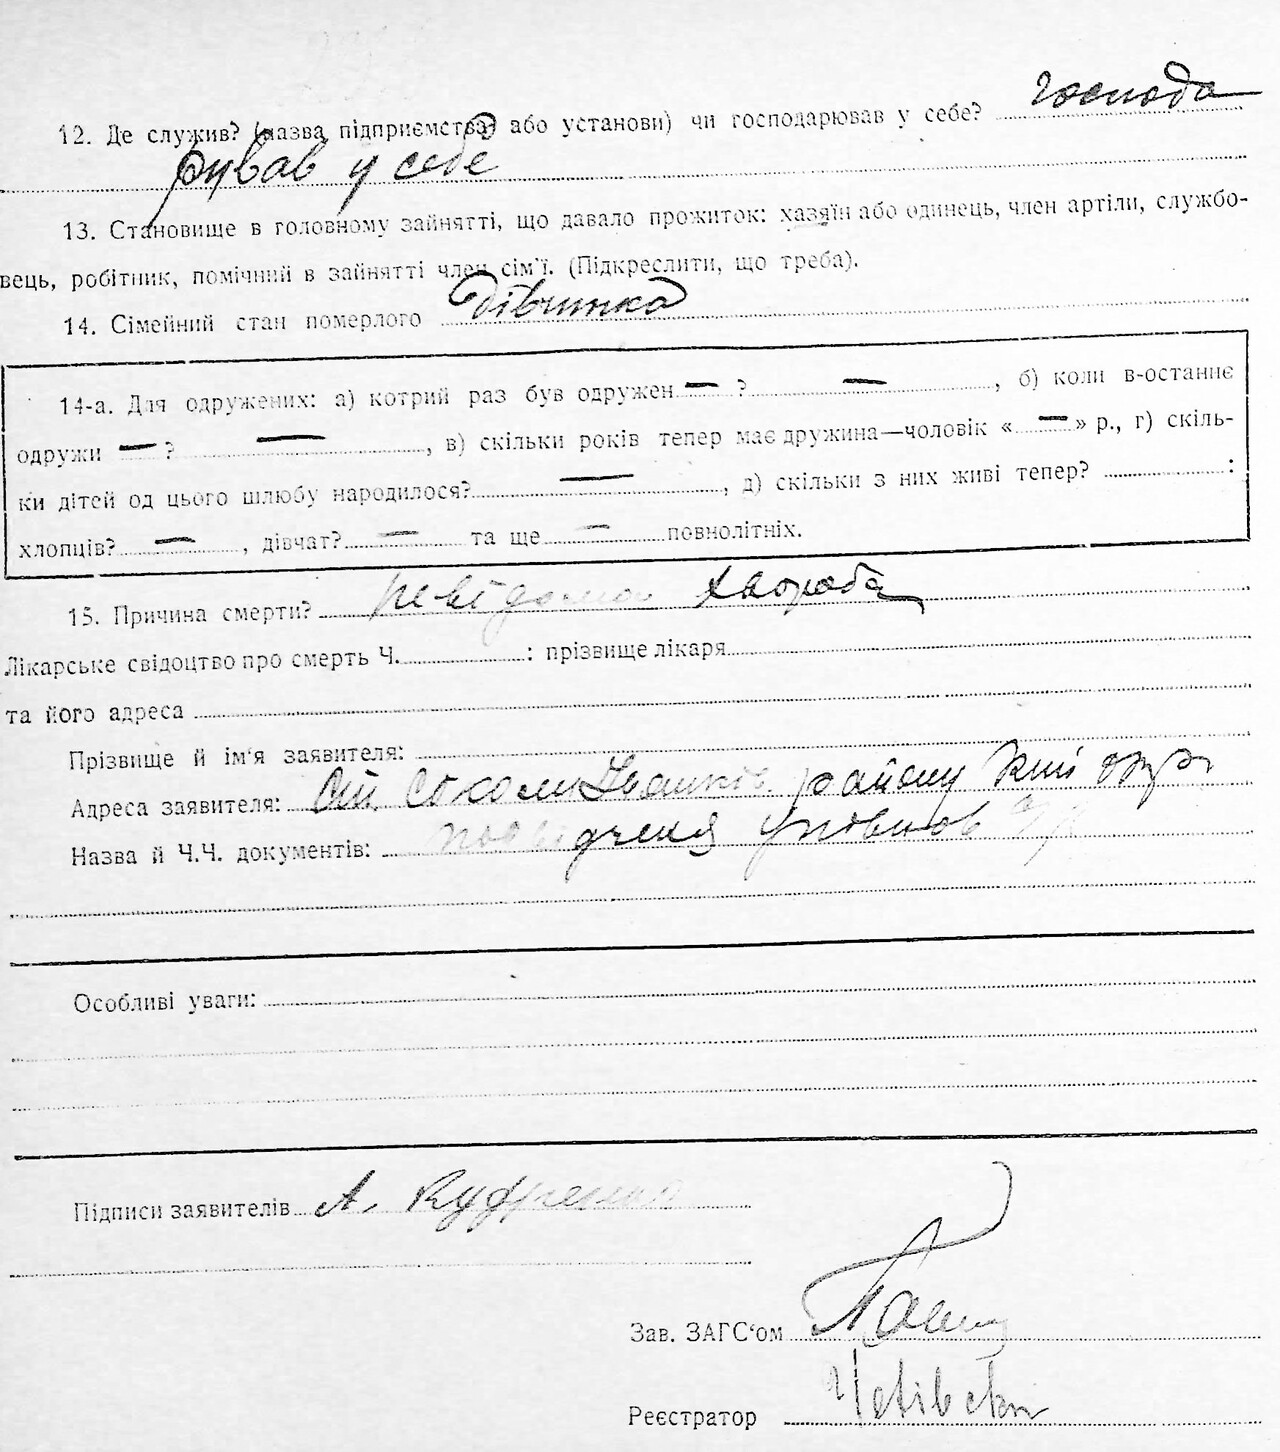 господа
12. Де служив? (назва підприємства) або установи) чи господарював у себе?
рував у себе
13. Становище в головному зайнятті, що давало прожиток: хазяїн або одинець, член артіли, службо-
вець, робітник, помічний в зайнятті член сім'ї. (Підкреслити, що треба).
14. Сімейний стан померлого дівчинка
14-а. Для одружених: а) котрий раз був одружен — ? — , б) коли в-останнє
одружи — ? — , в) скільки років тепер має дружина—чоловік « — » р., г) скіль-
ки дітей од цього шлюбу народилося? — , д) скільки з них живі тепер? :
хлопців? — , дівчат? — та ще — повнолітніх.
15. Причина смерти? невідома хвороба
Лікарське свідоцтво про смерть Ч. : прізвище лікаря
та його адреса
Прізвище й ім'я заявителя:
Адреса заявителя: району
Назва й Ч.Ч. документів:
Особливі уваги:
Підписи заявителів А.
Зав. ЗАГС'ом
Реєстратор